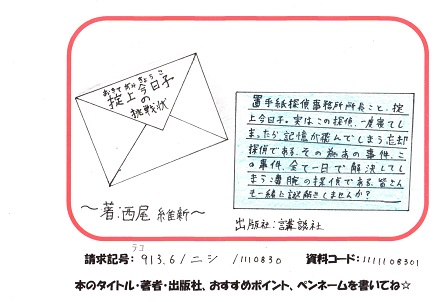 おきてがみ きょうこ
掟上今日子
の
挑戦状
～著:西尾 維新～
置手紙探偵事務所所長こと、掟
上今日子。実はこの探偵、一度寝てし
まったら、記憶が飛んでしまう忘却
探偵である。その為あの事件、こ
の事件、全て一日で解決してし
まう凄腕の探偵である。皆さん
も一緒に謎解きしませんか?
出版社:講談社
ラコ
請求記号:913.6/ニシ /1110830 資料コード:1111108301
本のタイトル・著者・出版社、おすすめポイント、ペンネームを書いてね☆